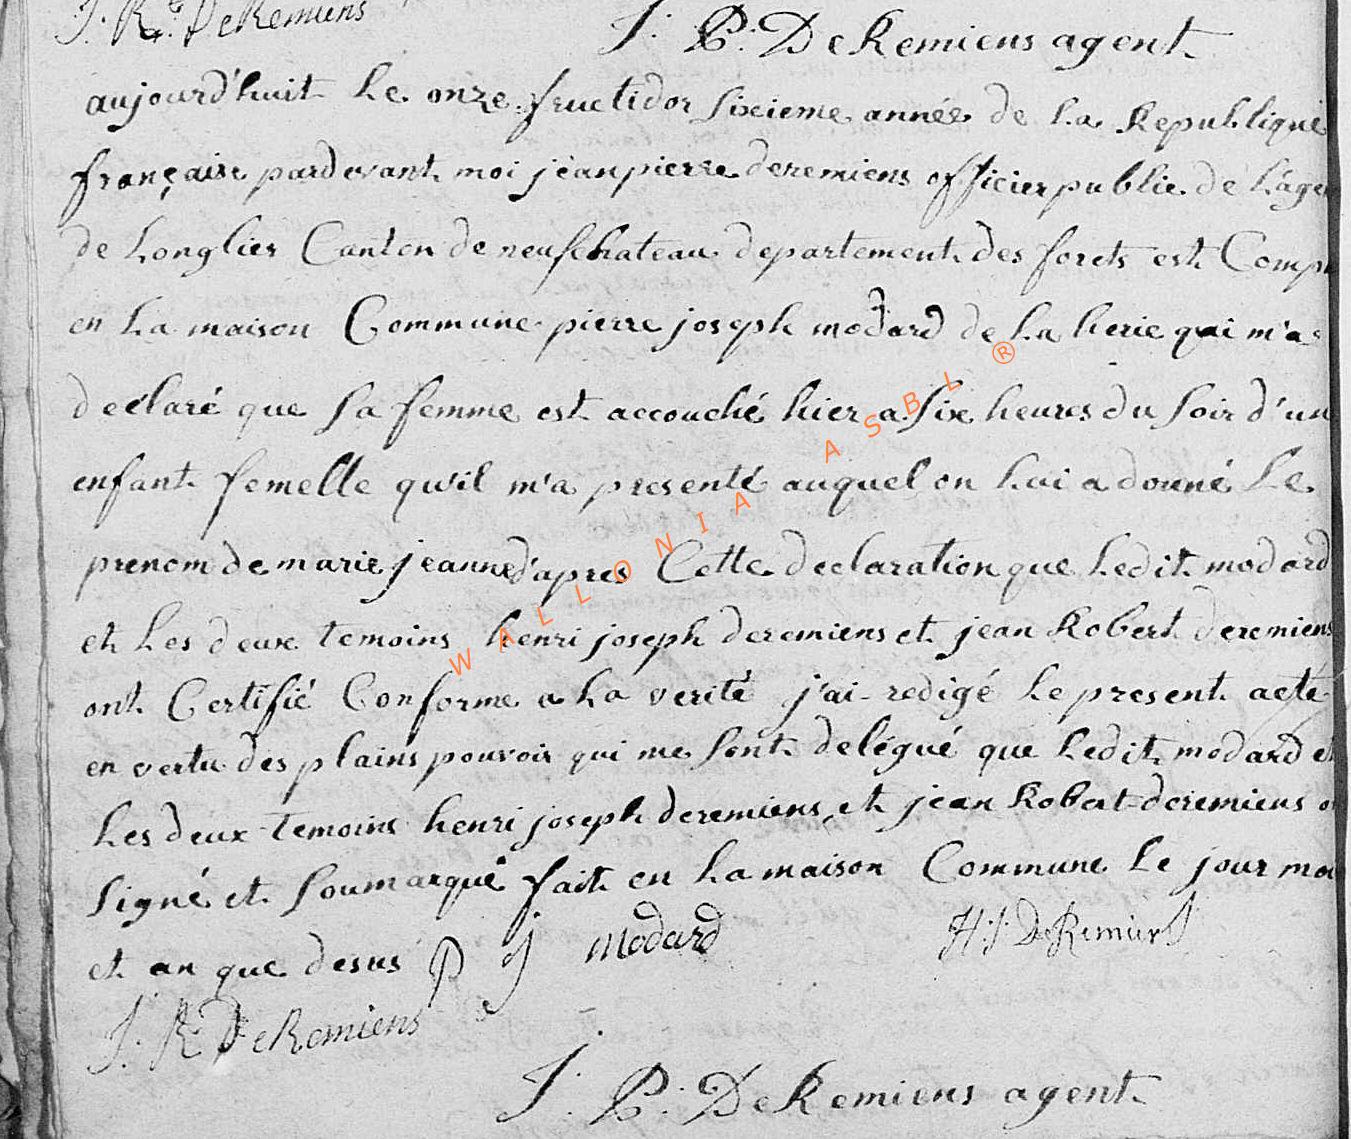 J. R. DeRemiens
J. P. DeRemiens agent
aujourd'huit le onze fructidor sixieme année de la Republique
française pardevant moi jean pierre deremiens officier public de l'agen
de Longlier Canton de neufchateau departement des forets est Comp
en la maison Commune pierre joseph modard de la herie qui m'a
declaré que sa femme est accouché hier a six heures du soir d'un
enfant femelle qu'il m'a presenté auquel on lui a donné le
prenom de marie jeanne d'apres Cette declaration que ledit modard
et les deux temoins henri joseph deremiens et jean Robert deremiens
ont Certifié Conforme a la verité j'ai redigé le present acte
en vertu des plains pouvoir qui me sont delégué que ledit modard et
les deux temoins henri joseph deremiens et jean Robert deremiens o
signé et soumarqué fait en la maison Commune le jour moi
et an que desus P J modard H. J. DeRemiens
J. R. DeRemiens
J. P. DeRemiens agent
WALLONIA ASBL ®